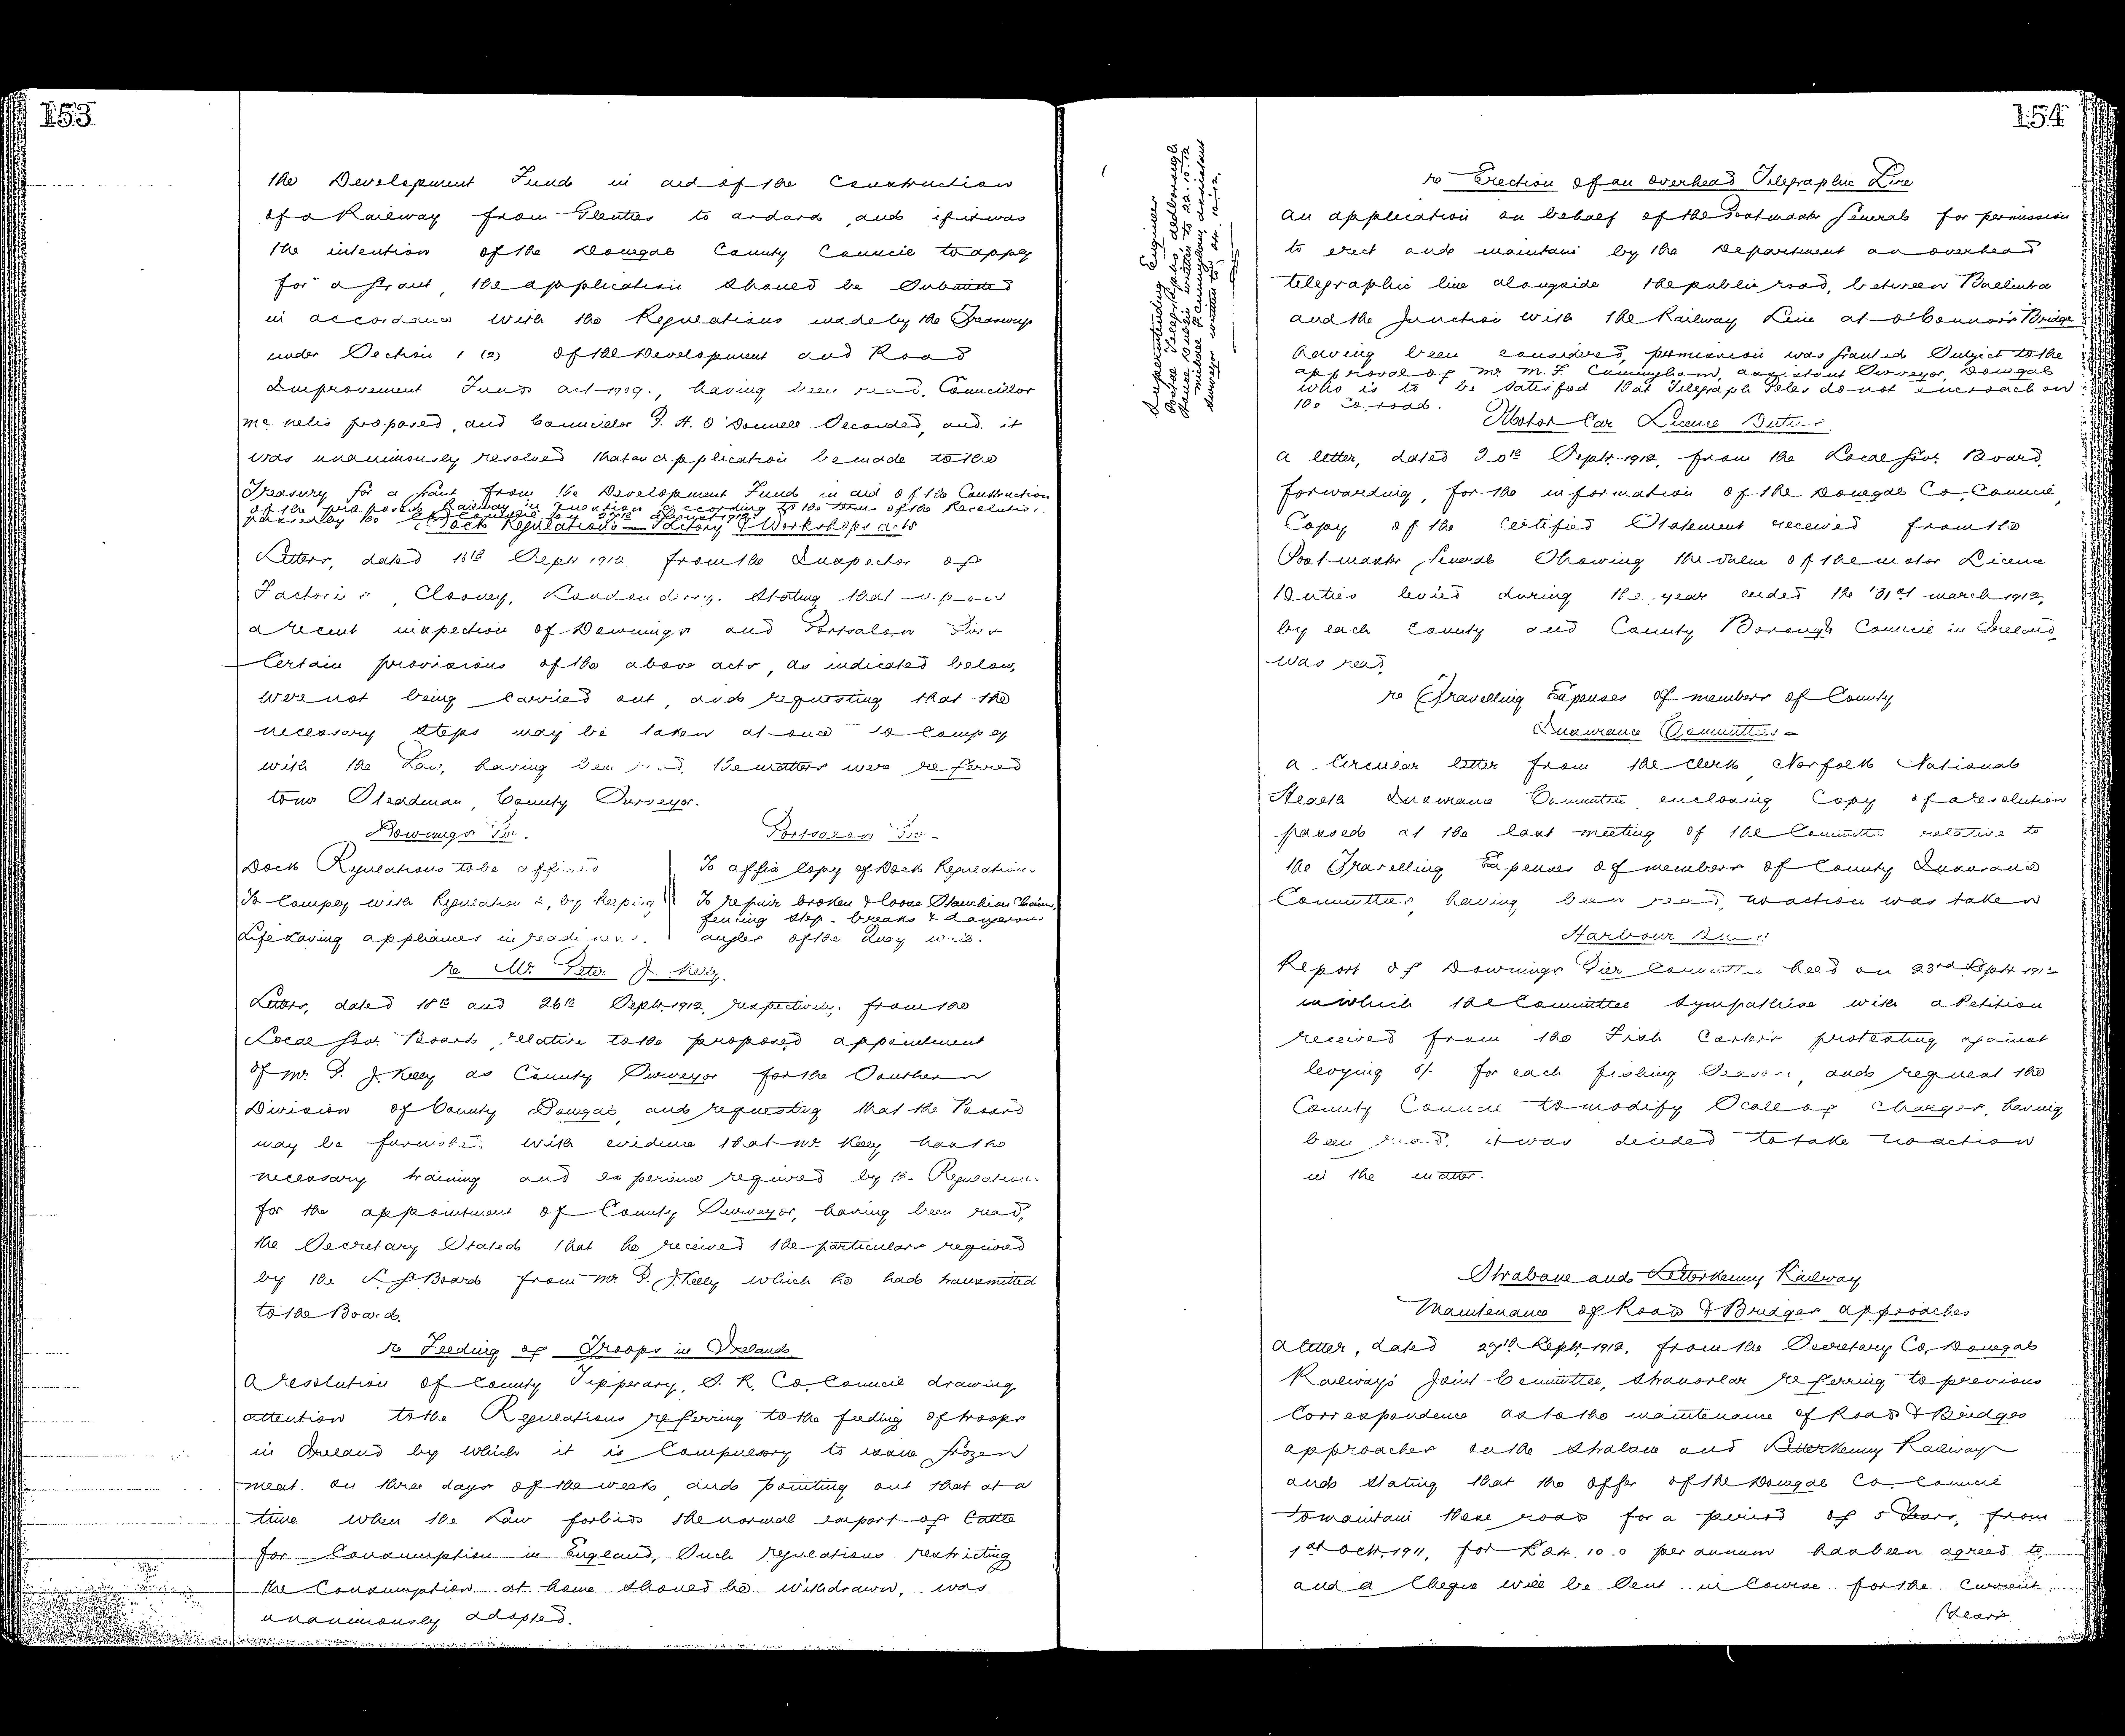 153
the Development Fund in aid of the Construction
of a Railway from Glenties to Ardara, and if it was
the intention of the Donegal County Council to apply
for a Grant, the application should be Submitted
in accordance with the Regulations made by the Treasury
under Section 1 (2) of the Development and Road
Improvement Funds Act 1909, having been read, Councillor
McNelis proposed, and Councillor P. H. O'Donnell Seconded, and it
was unanimously resolved that an application be made to the
Treasury for a Grant from the Development Fund in aid of the Construction
of the proposed Railway in question according to the terms of the Resolution
passed by the Co Council on 27th August 1912.
Dock Regulations — Factory & Workshops Acts
Letters, dated 16th Sept 1912, from the Inspector of
Factories, Clooney, Londonderry, stating that upon
a recent inspection of Downings and Portsalon Piers
Certain provisions of the above acts, as indicated below,
were not being carried out, and requesting that the
necessary steps may be taken at once to Comply
with the Law, having been read, the matters were referred
to Mr Steadman, County Surveyor.
Downings Pier. Portsalon Pier
Dock Regulations to be affixed
To Comply with Regulation 2, by keeping
Life saving appliances in readiness.
To affix Copy of Dock Regulations.
To repair broken & loose Stanchion Chains,
fencing step-breaks & dangerous
angles of the Quay wall.
re Mr. Peter J. Kelly.
Letters, dated 18th and 26th Sept. 1912, respectively, from the
Local Govt. Board, relative to the proposed appointment
of Mr. P. J. Kelly as County Surveyor for the Southern
Division of County Donegal, and requesting that the Board
may be furnished with evidence that Mr. Kelly has the
necessary training and experience required by the Regulations
for the appointment of County Surveyor, having been read,
the Secretary Stated that he received the particulars required
by the L G Board from Mr P. J. Kelly which he had transmitted
to the Board.
re Feeding of Troops in Ireland
A resolution of County Tipperary, S. R. Co. Council drawing
attention to the Regulations referring to the feeding of troops
in Ireland by which it is Compulsory to issue frozen
meat on three days of the week, and pointing out that at a
time when the Law forbids the normal export of Cattle
for Consumption in England, Such regulations restricting
the Consumption at home should be withdrawn, was
unanimously adopted.
154
Superintending Engineer
Postal Telegraphs, Aldborough
House Dublin written to 22.10.12
Michael F. Cunningham, Assistant
Surveyor written to 24.10.12.
re Erection of an overhead Telegraphic Line
An application on behalf of the Postmaster General for permission
to erect and maintain by the Department an overhead
telegraphic line alongside the public road, between Ballintra
and the Junction with the Railway Line at O'Connor's Bridge
having been considered, permission was granted Subject to the
approval of Mr M. F. Cunningham, Assistant Surveyor, Donegal
who is to be satisfied that Telegraph Poles do not encroach on
the Co. road.
Motor Car Licence Duties.
A letter, dated 20th Sept. 1912, from the Local Govt. Board,
forwarding, for the information of the Donegal Co. Council,
Copy of the Certified Statement received from the
Postmaster General Showing the value of the motor Licence
Duties levied during the year ended the 31st March 1912,
by each County and County Borough Council in Ireland,
was read.
re Travelling Expenses of members of County
Insurance Committees
A Circular letter from the Clerk, Norfolk National
Health Insurance Committee enclosing Copy of a resolution
passed at the last meeting of the Committee relative to
the Travelling Expenses of members of County Insurance
Committees, having been read, no action was taken
Harbour Dues
Report of Downings Pier Committee held on 23rd Sept. 1912
in which the Committee Sympathise with a Petition
received from the Fish Carters protesting against
levying 5/- for each fishing Season, and request the
County Council to modify Scale of Charges, having
been read, it was decided to take no action
in the matter.
Strabane and Letterkenny Railway
Maintenance of Road & Bridges approaches
A letter, dated 27th Sept. 1912, from the Secretary Co Donegal
Railways Joint Committee, Stranorlar referring to previous
Correspondence as to the maintenance of Road & Bridges
approaches on the Strabane and Letterkenny Railway
and stating that the offer of the Donegal Co. Council
to maintain these roads for a period of 5 Years, from
1st Octr. 1911, for £24.10.0 per annum has been agreed to,
and a Cheque will be Sent in Course for the Current
Years